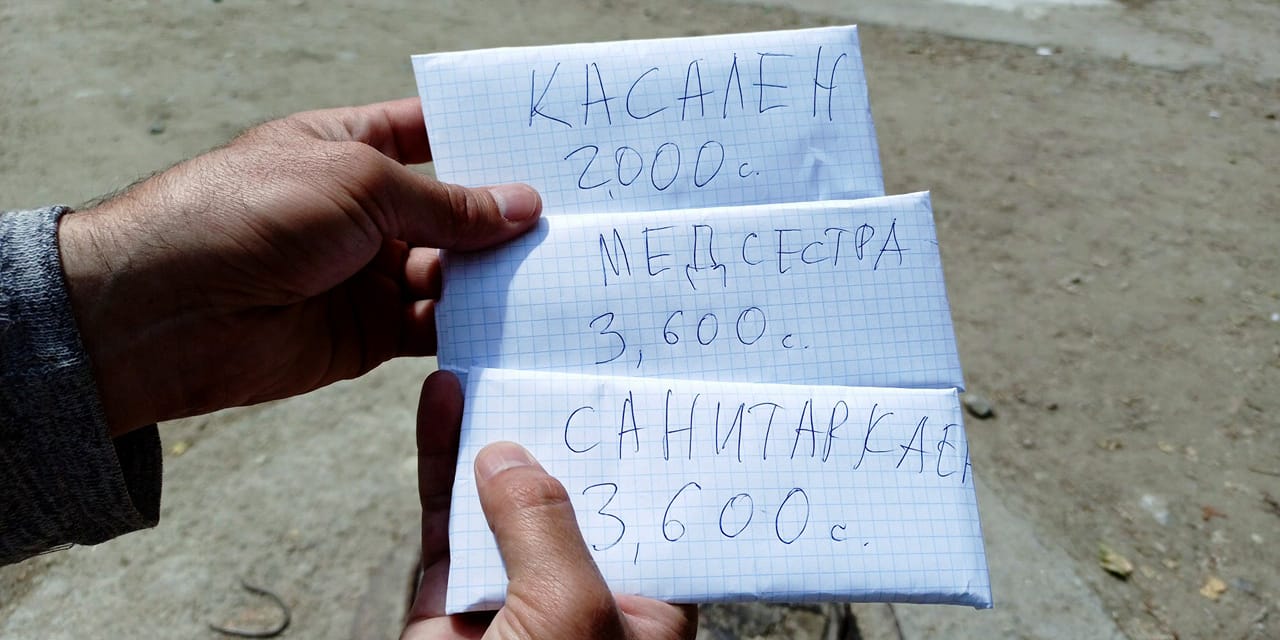 КАСАЛЕН
2,000 с.
МЕДСЕСТРА
3,600 с.
САНИТАРКАЕН
3,600 с.